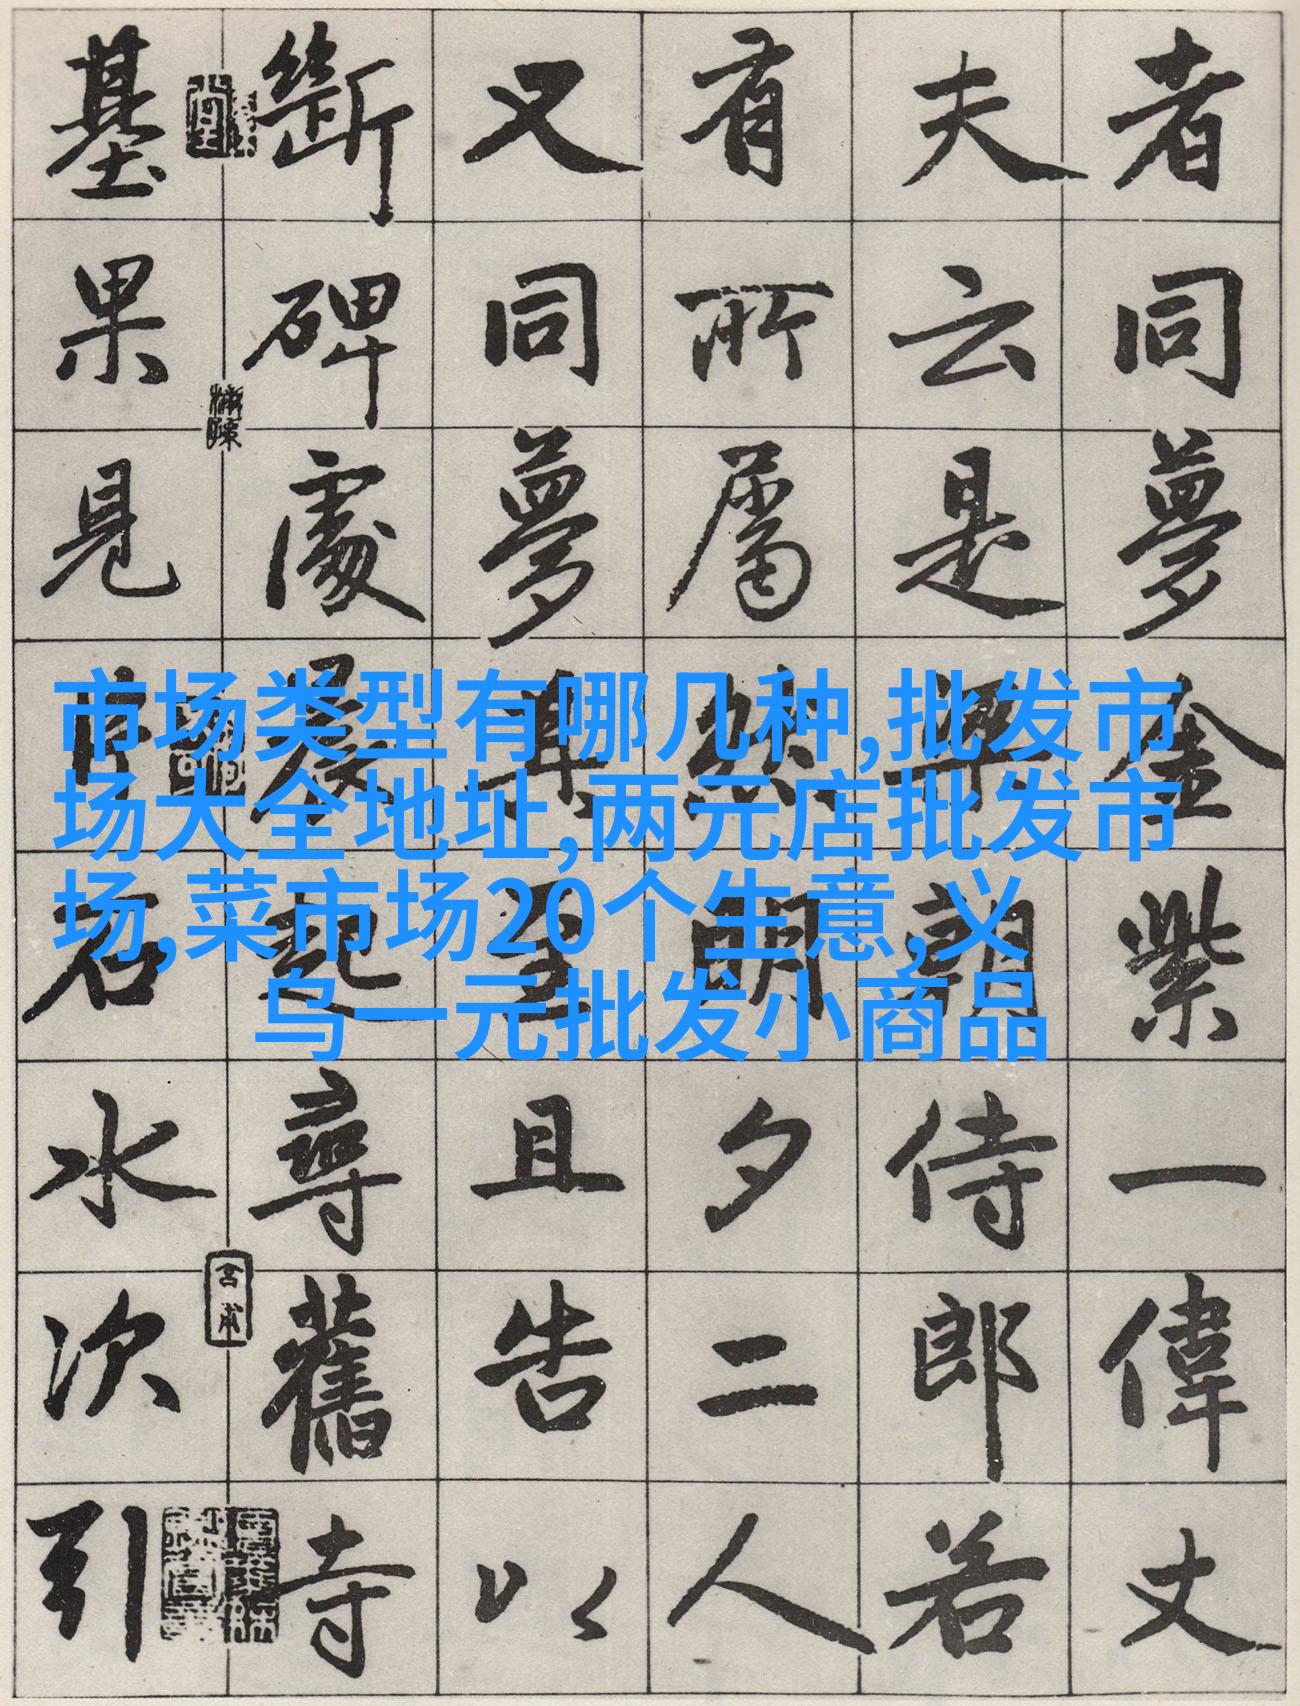 者同夢金紫一偉丈
夫云是朝侍郎若
有所屬然明夕二人
又同夢其至且告以
斷碑處晨起尋舊寺
基果見石水次引
市场类型有哪几种,批发市
场大全地址,两元店批发市
场,菜市场20个生意,义
乌一元批发小商品